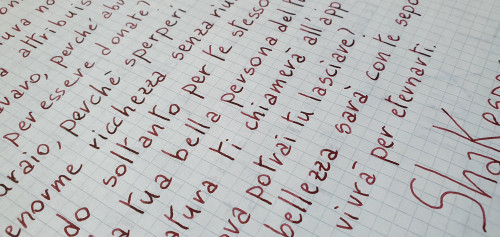 ura no
attribuis
varo, perché abu
per essere donate?
uraio, perché sperperi
enorme ricchezza senza riu
do soltanto per te stesso
a tua bella persona de
atura ti chiamerà all'app
va potrai tu lasciare?
bellezza sarà con te sepo
vivrà per eternarti.
Shakesp